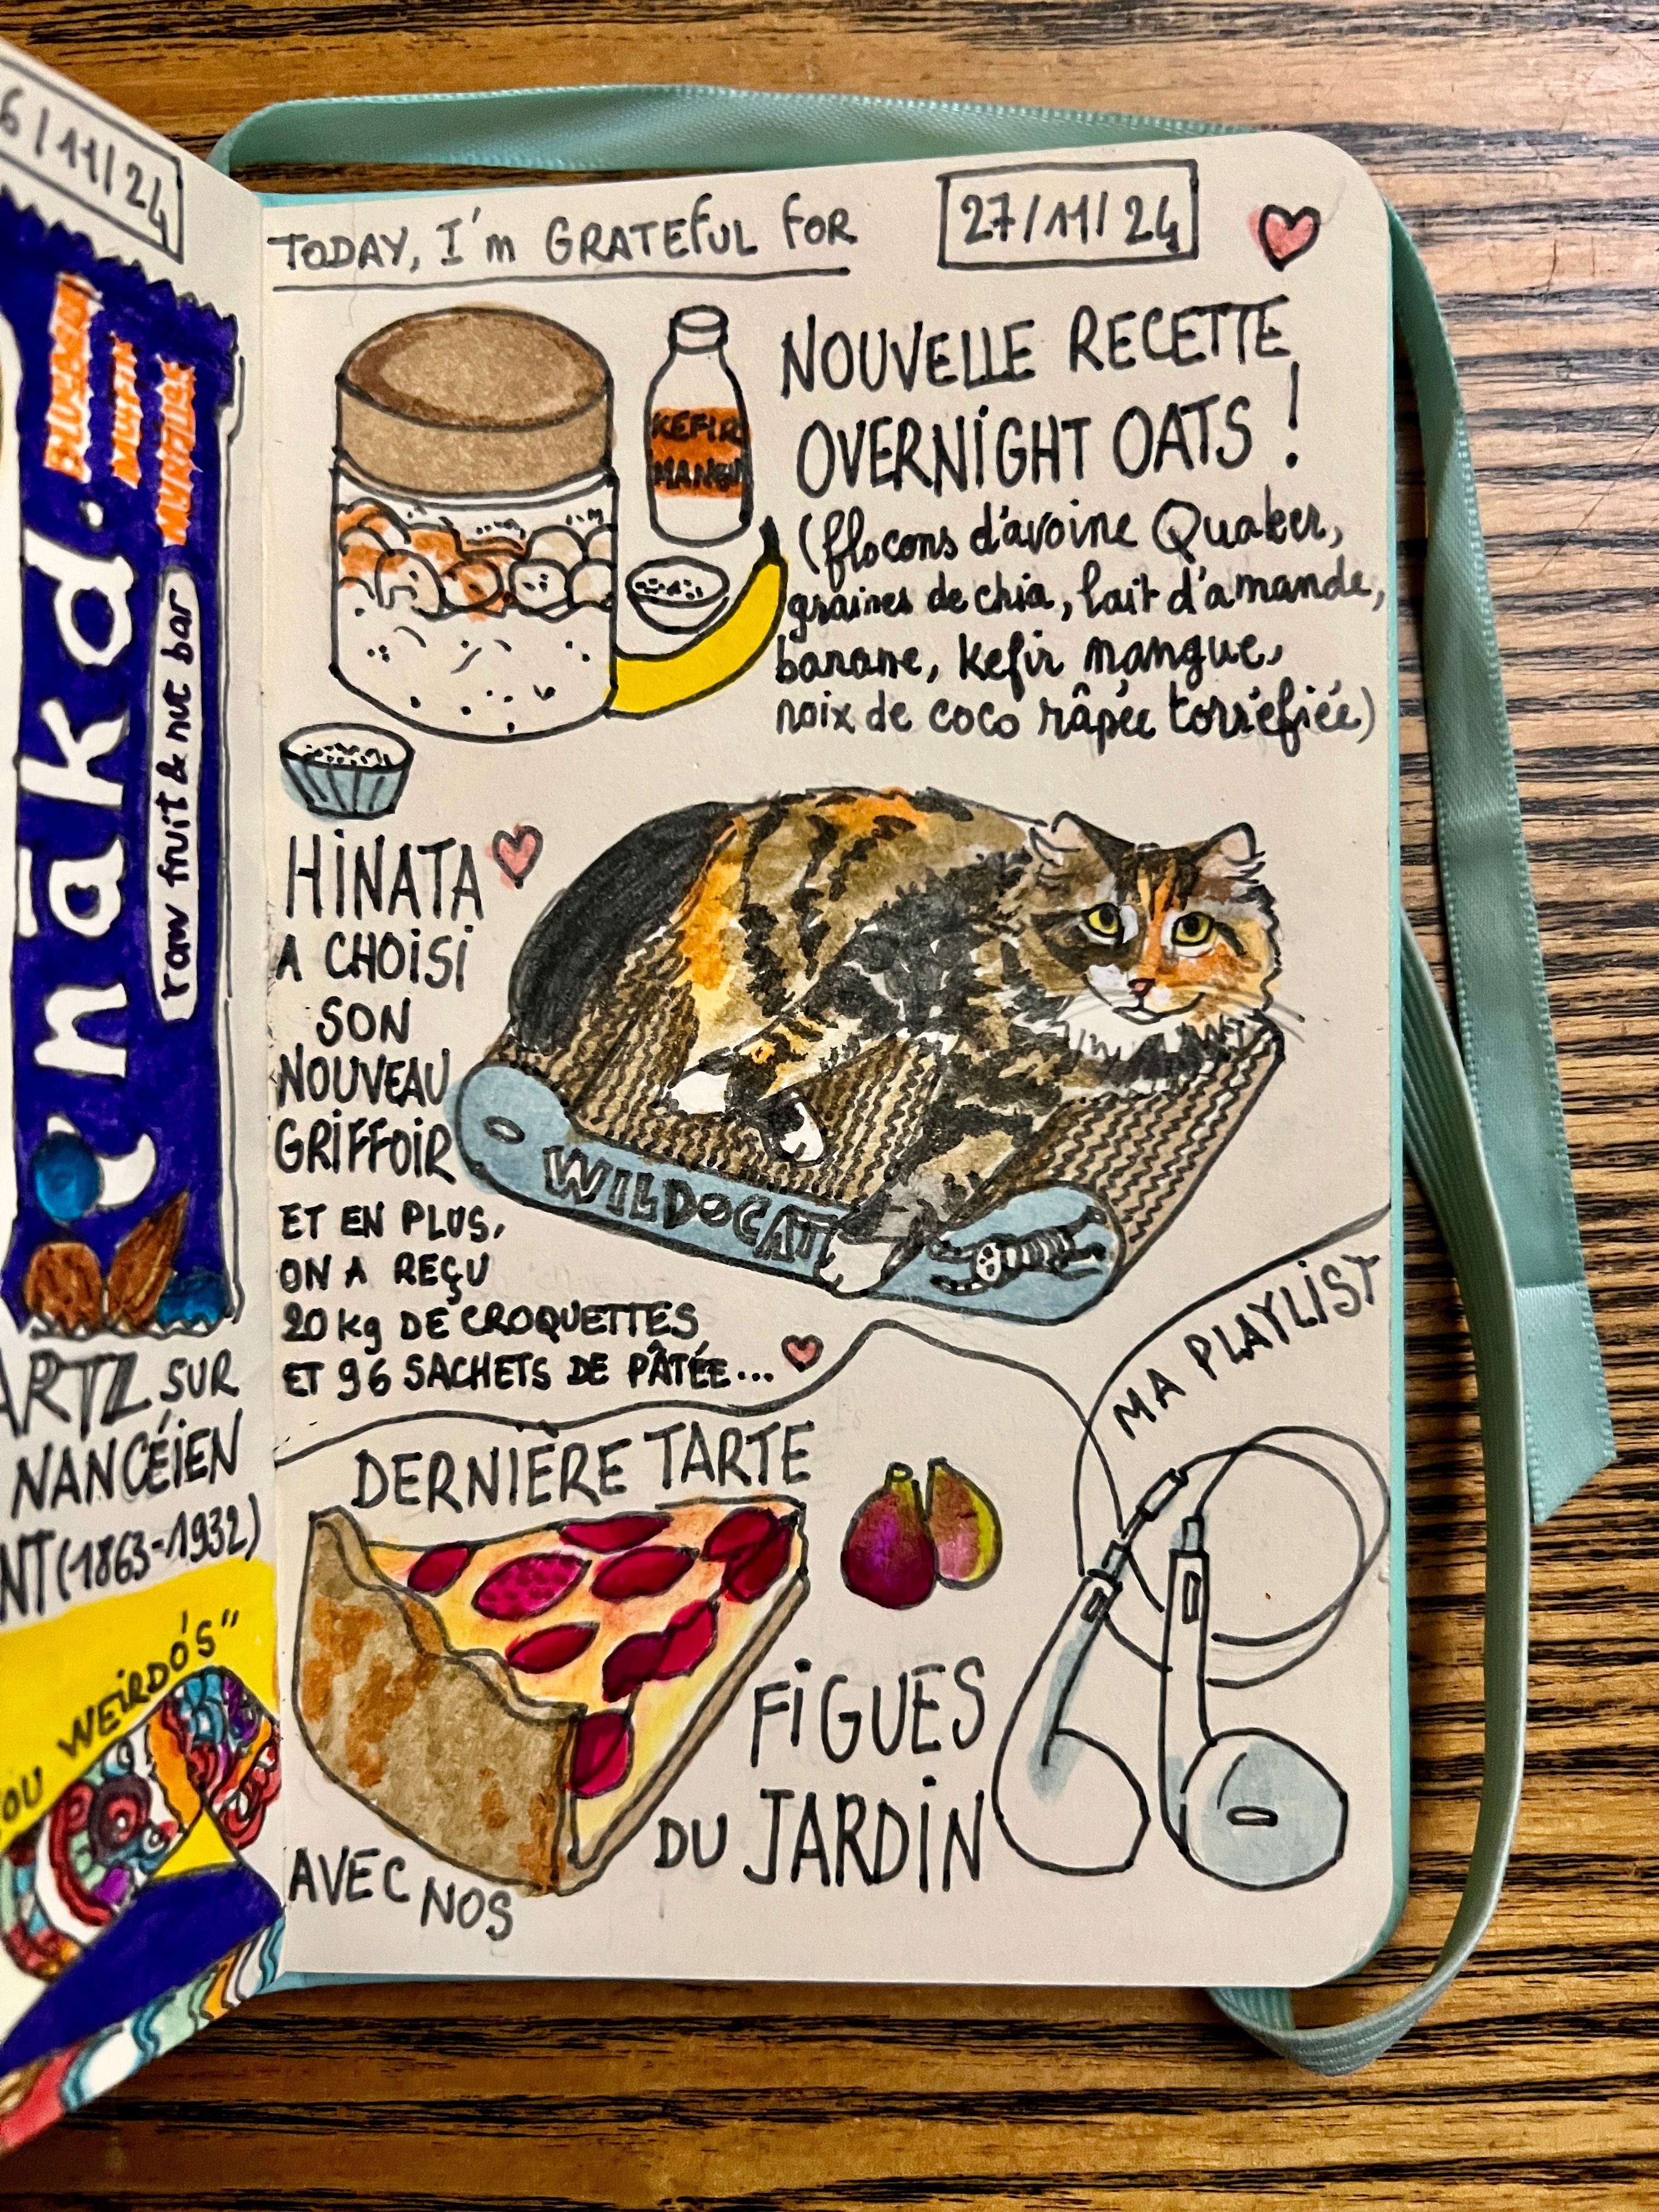 6/11/24
BLUEBERRY
MUFFIN
MYRTILLE
nākd.
raw fruit & nut bar
ARTZ SUR
NANCÉIEN
NT (1863-1932)
OU WEIRDO'S"
TODAY, I'm GRATEFUL FOR
27/11/24
KEFIR
MANGU
NOUVELLE RECETTE
OVERNIGHT OATS !
(flocons d'avoine Quaker,
graines de chia, lait d'amande,
banane, kefir mangue,
noix de coco râpée torréfiée)
HINATA
A CHOISI
SON
NOUVEAU
GRIFFOIR
ET EN PLUS,
ON A REÇU
20 kg DE CROQUETTES
ET 96 SACHETS DE PÂTÉE...
WILDOCAT
MA PLAYLIST
DERNIÈRE TARTE
AVEC NOS
FIGUES
DU JARDIN